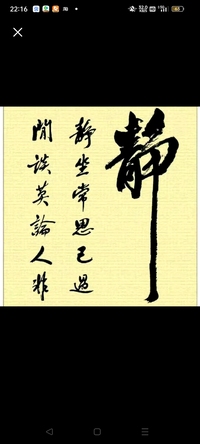 22:16
静
静坐常思己過
閒談莫論人非